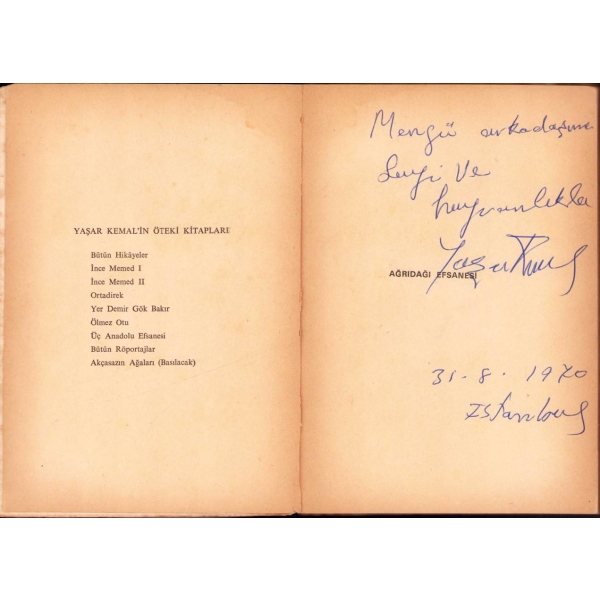 YAŞAR KEMAL'İN ÖTEKİ KİTAPLARI
Bütün Hikâyeler
İnce Memed I
İnce Memed II
Ortadirek
Yer Demir Gök Bakır
Ölmez Otu
Üç Anadolu Efsanesi
Bütün Röportajlar
Akçasazın Ağaları (Basılacak)
Mengü arkadaşıma
Sevgi Ve
hayranlıkla
Yaşar Kemal
AĞRIDAĞI EFSANESİ
31.8.1970
İstanbul